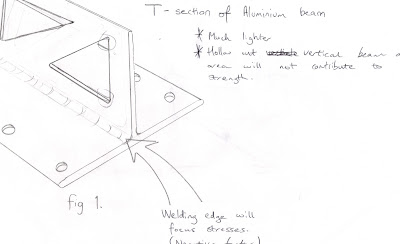 T-section of Aluminium beam
* Much lighter
* Hollow out vertical beam
area will not contibute to
strength.
fig 1.
Welding edge will
focus stresses.
(Negative factor)